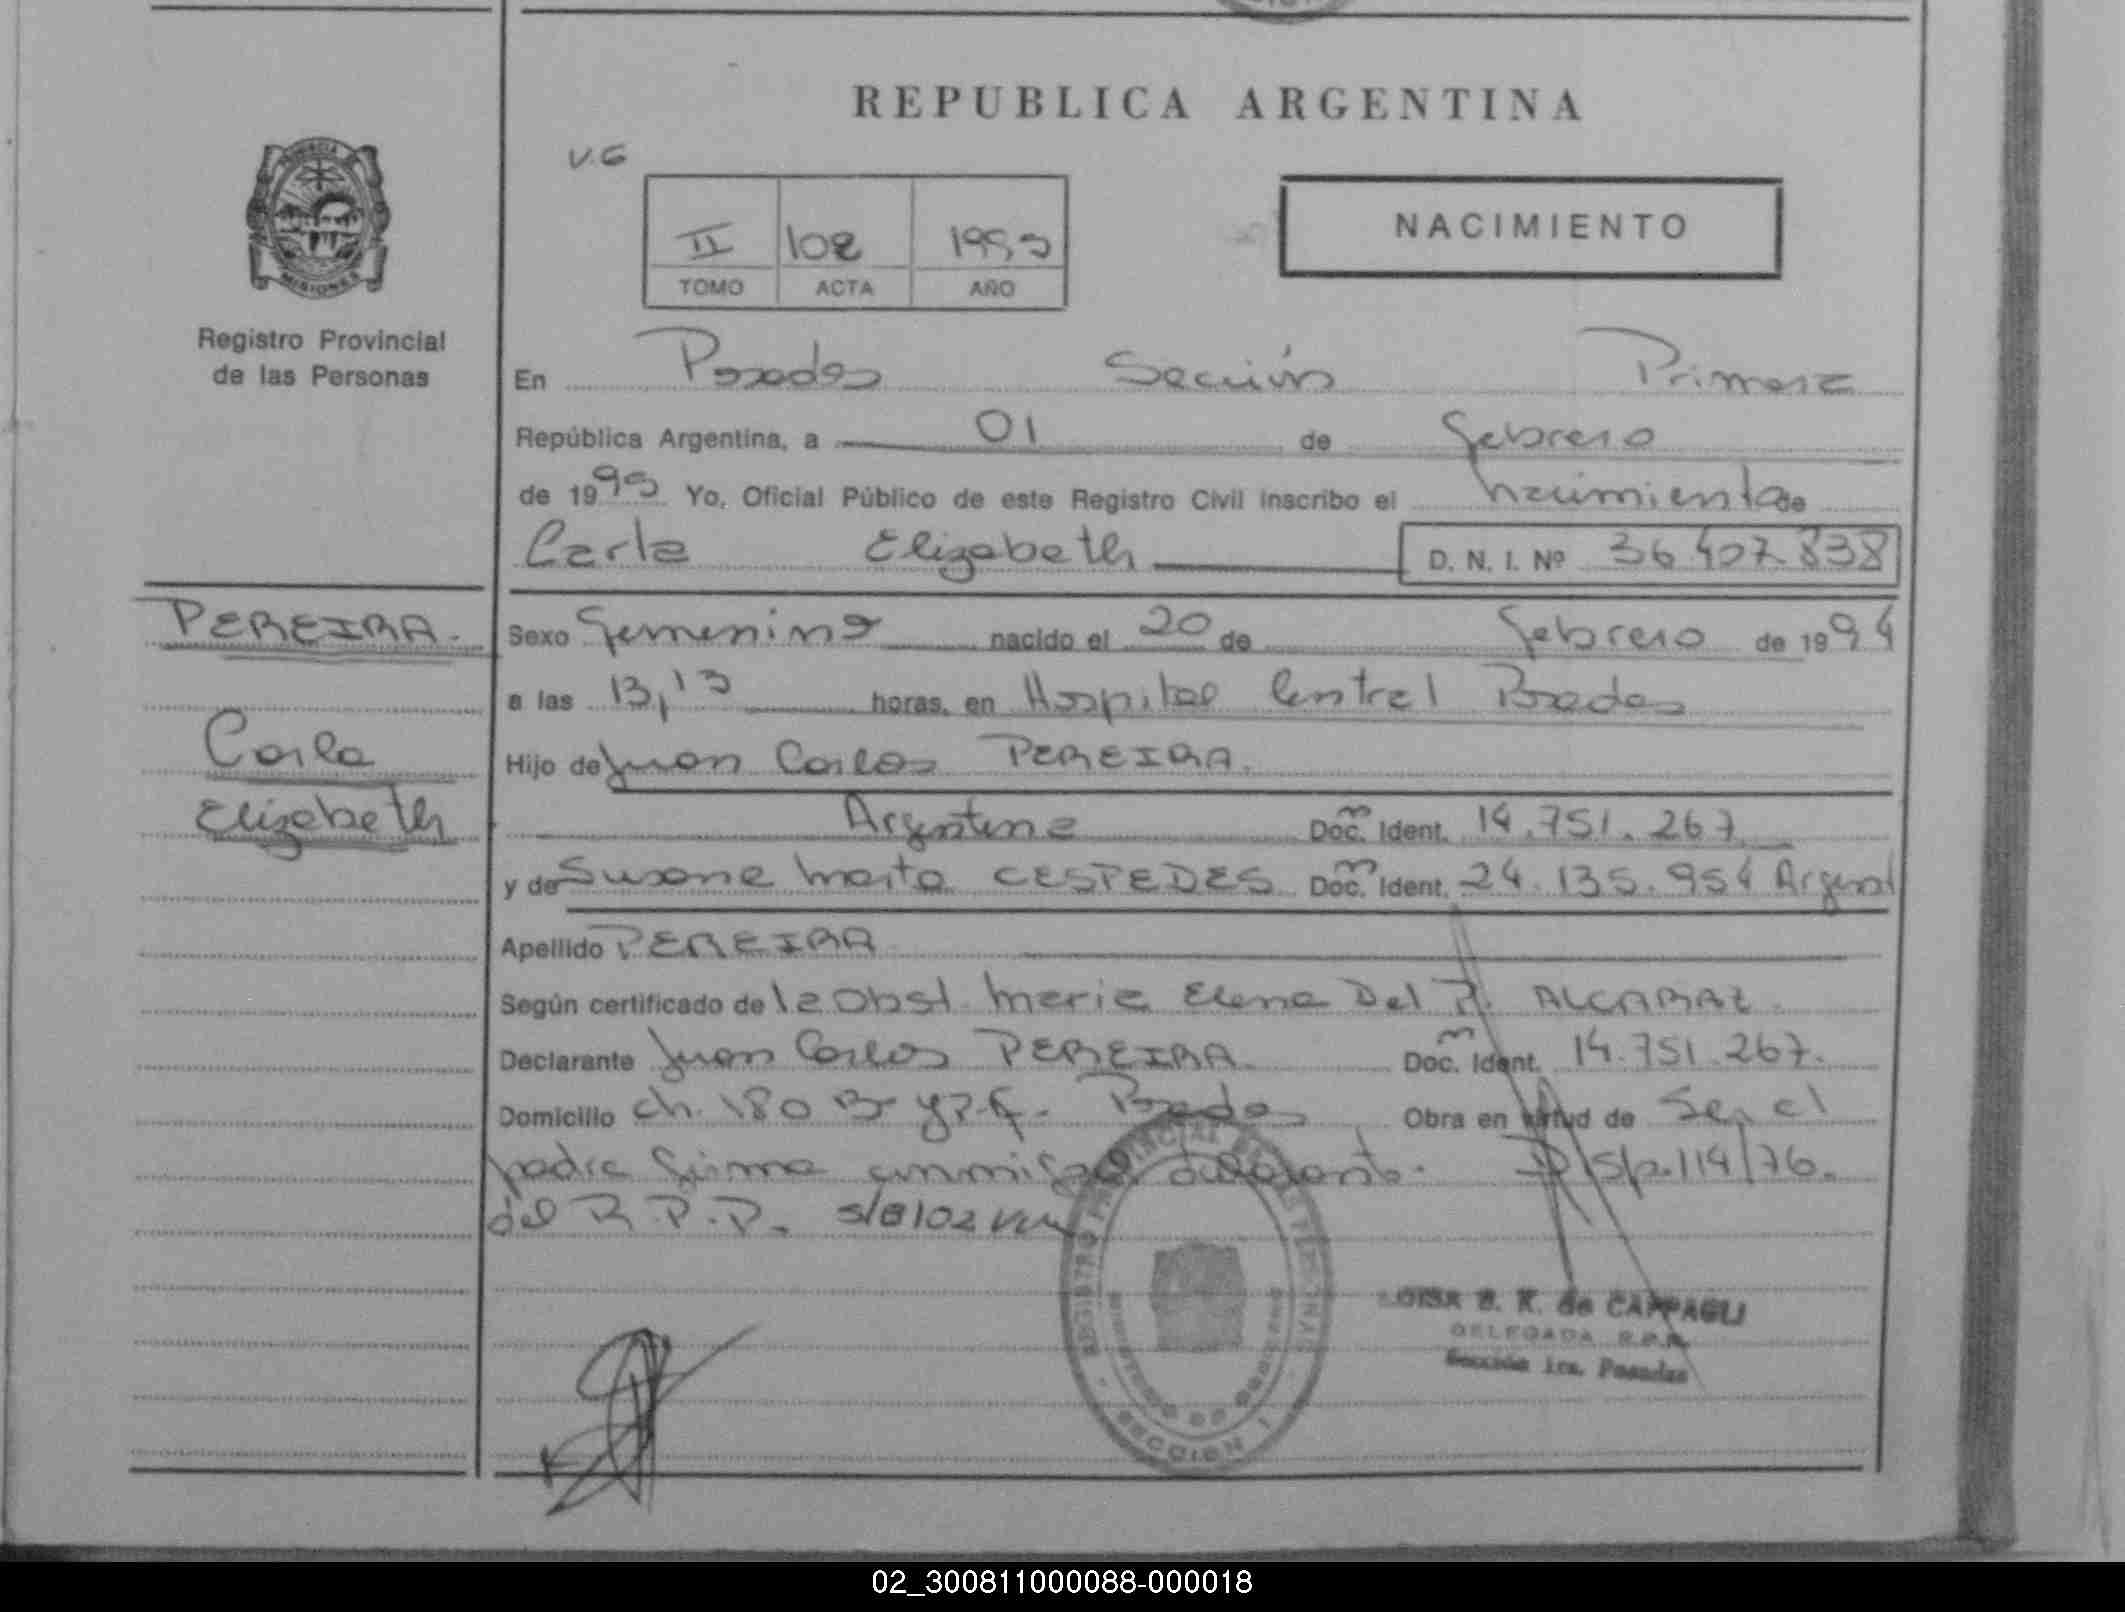 REPUBLICA ARGENTINA
V.G
NACIMIENTO
II 102 1995
TOMO ACTA AÑO
PROVINCIA DE
MISIONES
Registro Provincial
de las Personas
En Posadas Sección Primera
República Argentina, a 01 de Febrero
de 1995 Yo, Oficial Público de este Registro Civil inscribo el Nacimiento de
Carla Elizabeth D. N. I. Nº 36.407.838
PEREIRA.
Carla
Elizabeth
Sexo Femenino nacido el 20 de Febrero de 1994
a las 13,13 horas, en Hospital Central Posadas
Hijo de Juan Carlos PEREIRA.
Argentina Doc. Ident. 14.751.267
y de Susana Marta CESPEDES Doc. Ident. 24.135.954 Argent
Apellido PEREIRA
Según certificado de la Obst. Maria Elena Del R. ALCARAZ.
Declarante Juan Carlos PEREIRA Doc. Ident. 14.751.267.
Domicilio ch. 180 Bº Y.P.F. Posadas Obra en virtud de Ser el
padre firma conmigo Disp. 114/76.
del R.P.P. s/B 102
REGISTRO PROVINCIAL DE LAS PERSONAS
MINISTERIO DE GOBIERNO
SECCION 1
B. K. de CAPPAGLI
DELEGADA R.P.P.
Sección 1ra. Posadas
02_300811000088-000018